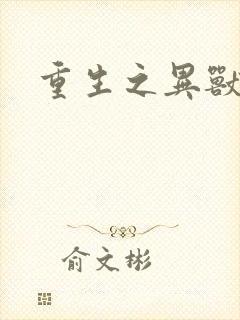 重生之異獸
俞文彬